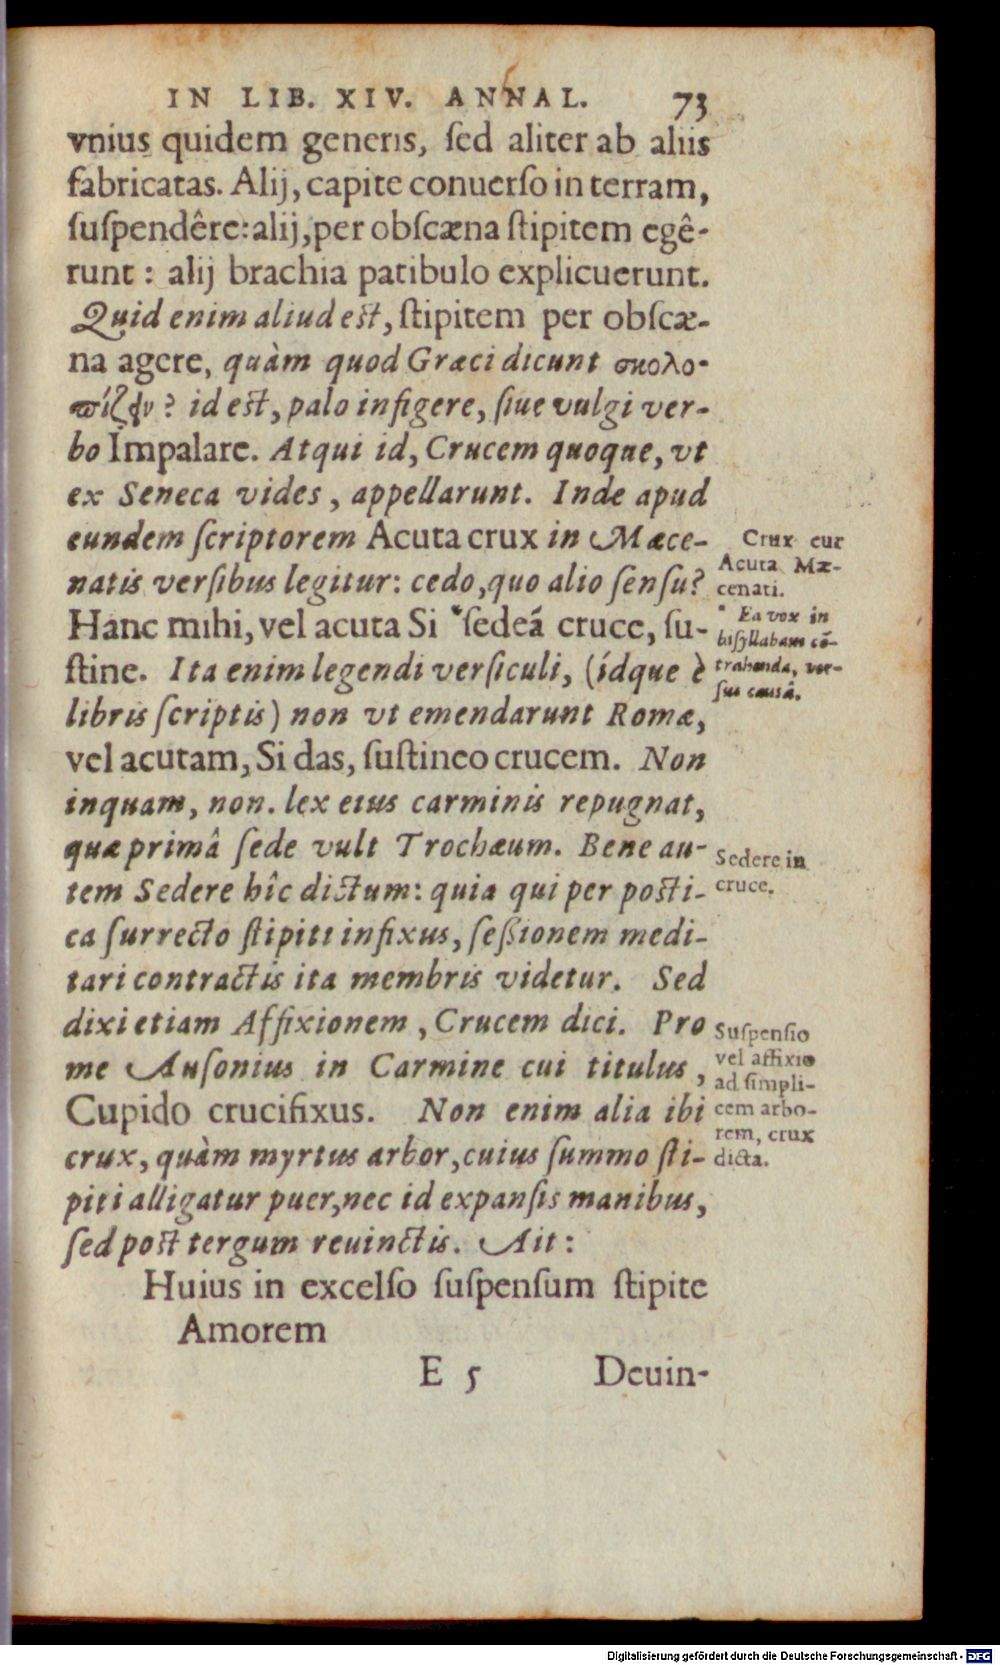 IN LIB. XIV. ANNAL. 73
vnius quidem generis, ſed aliter ab aliis
fabricatas. Alij, capite conuerſo in terram,
ſuſpendêre: alij, per obſcæna ſtipitem egê-
runt: alij brachia patibulo explicuerunt.
Quid enim aliud est, ſtipitem per obſcæ-
na agere, quàm quod Græci dicunt σκολο-
πίζειν? id est, palo infigere, ſiue vulgi ver-
bo Impalare. Atqui id, Crucem quoque, vt
ex Seneca vides, appellarunt. Inde apud
eundem ſcriptorem Acuta crux in Mæce-
natis verſibus legitur: cedo, quo alio ſenſu?
Hanc mihi, vel acuta Si *ſedeá cruce, ſu-
ſtine. Ita enim legendi verſiculi, (ídque è
libris ſcriptis) non vt emendarunt Romæ,
vel acutam, Si das, ſuſtineo crucem. Non
inquam, non. lex eius carminis repugnat,
quæ primâ ſede vult Trochæum. Bene au-
tem Sedere hîc dictum: quia qui per poſti-
ca ſurrecto ſtipiti infixus, ſeßionem medi-
tari contractis ita membris videtur. Sed
dixi etiam Affixionem, Crucem dici. Pro
me Auſonius in Carmine cui titulus,
Cupido crucifixus. Non enim alia ibi
crux, quàm myrtus arbor, cuius ſummo ſti-
piti alligatur puer, nec id expanſis manibus,
ſed post tergum reuinctis. Ait:
Huius in excelſo ſuſpenſum ſtipite
Amorem
E 5 Deuin-
Crux cur
Acuta Mæ-
cenati.
* Ea vox in
biſyllabam cõ-
trahenda, ver-
ſus causâ.
Sedere in
cruce.
Suſpenſio
vel affixio
ad ſimpli-
cem arbo-
rem, crux
dicta.
Digitalisierung gefördert durch die Deutsche Forschungsgemeinschaft - DFG